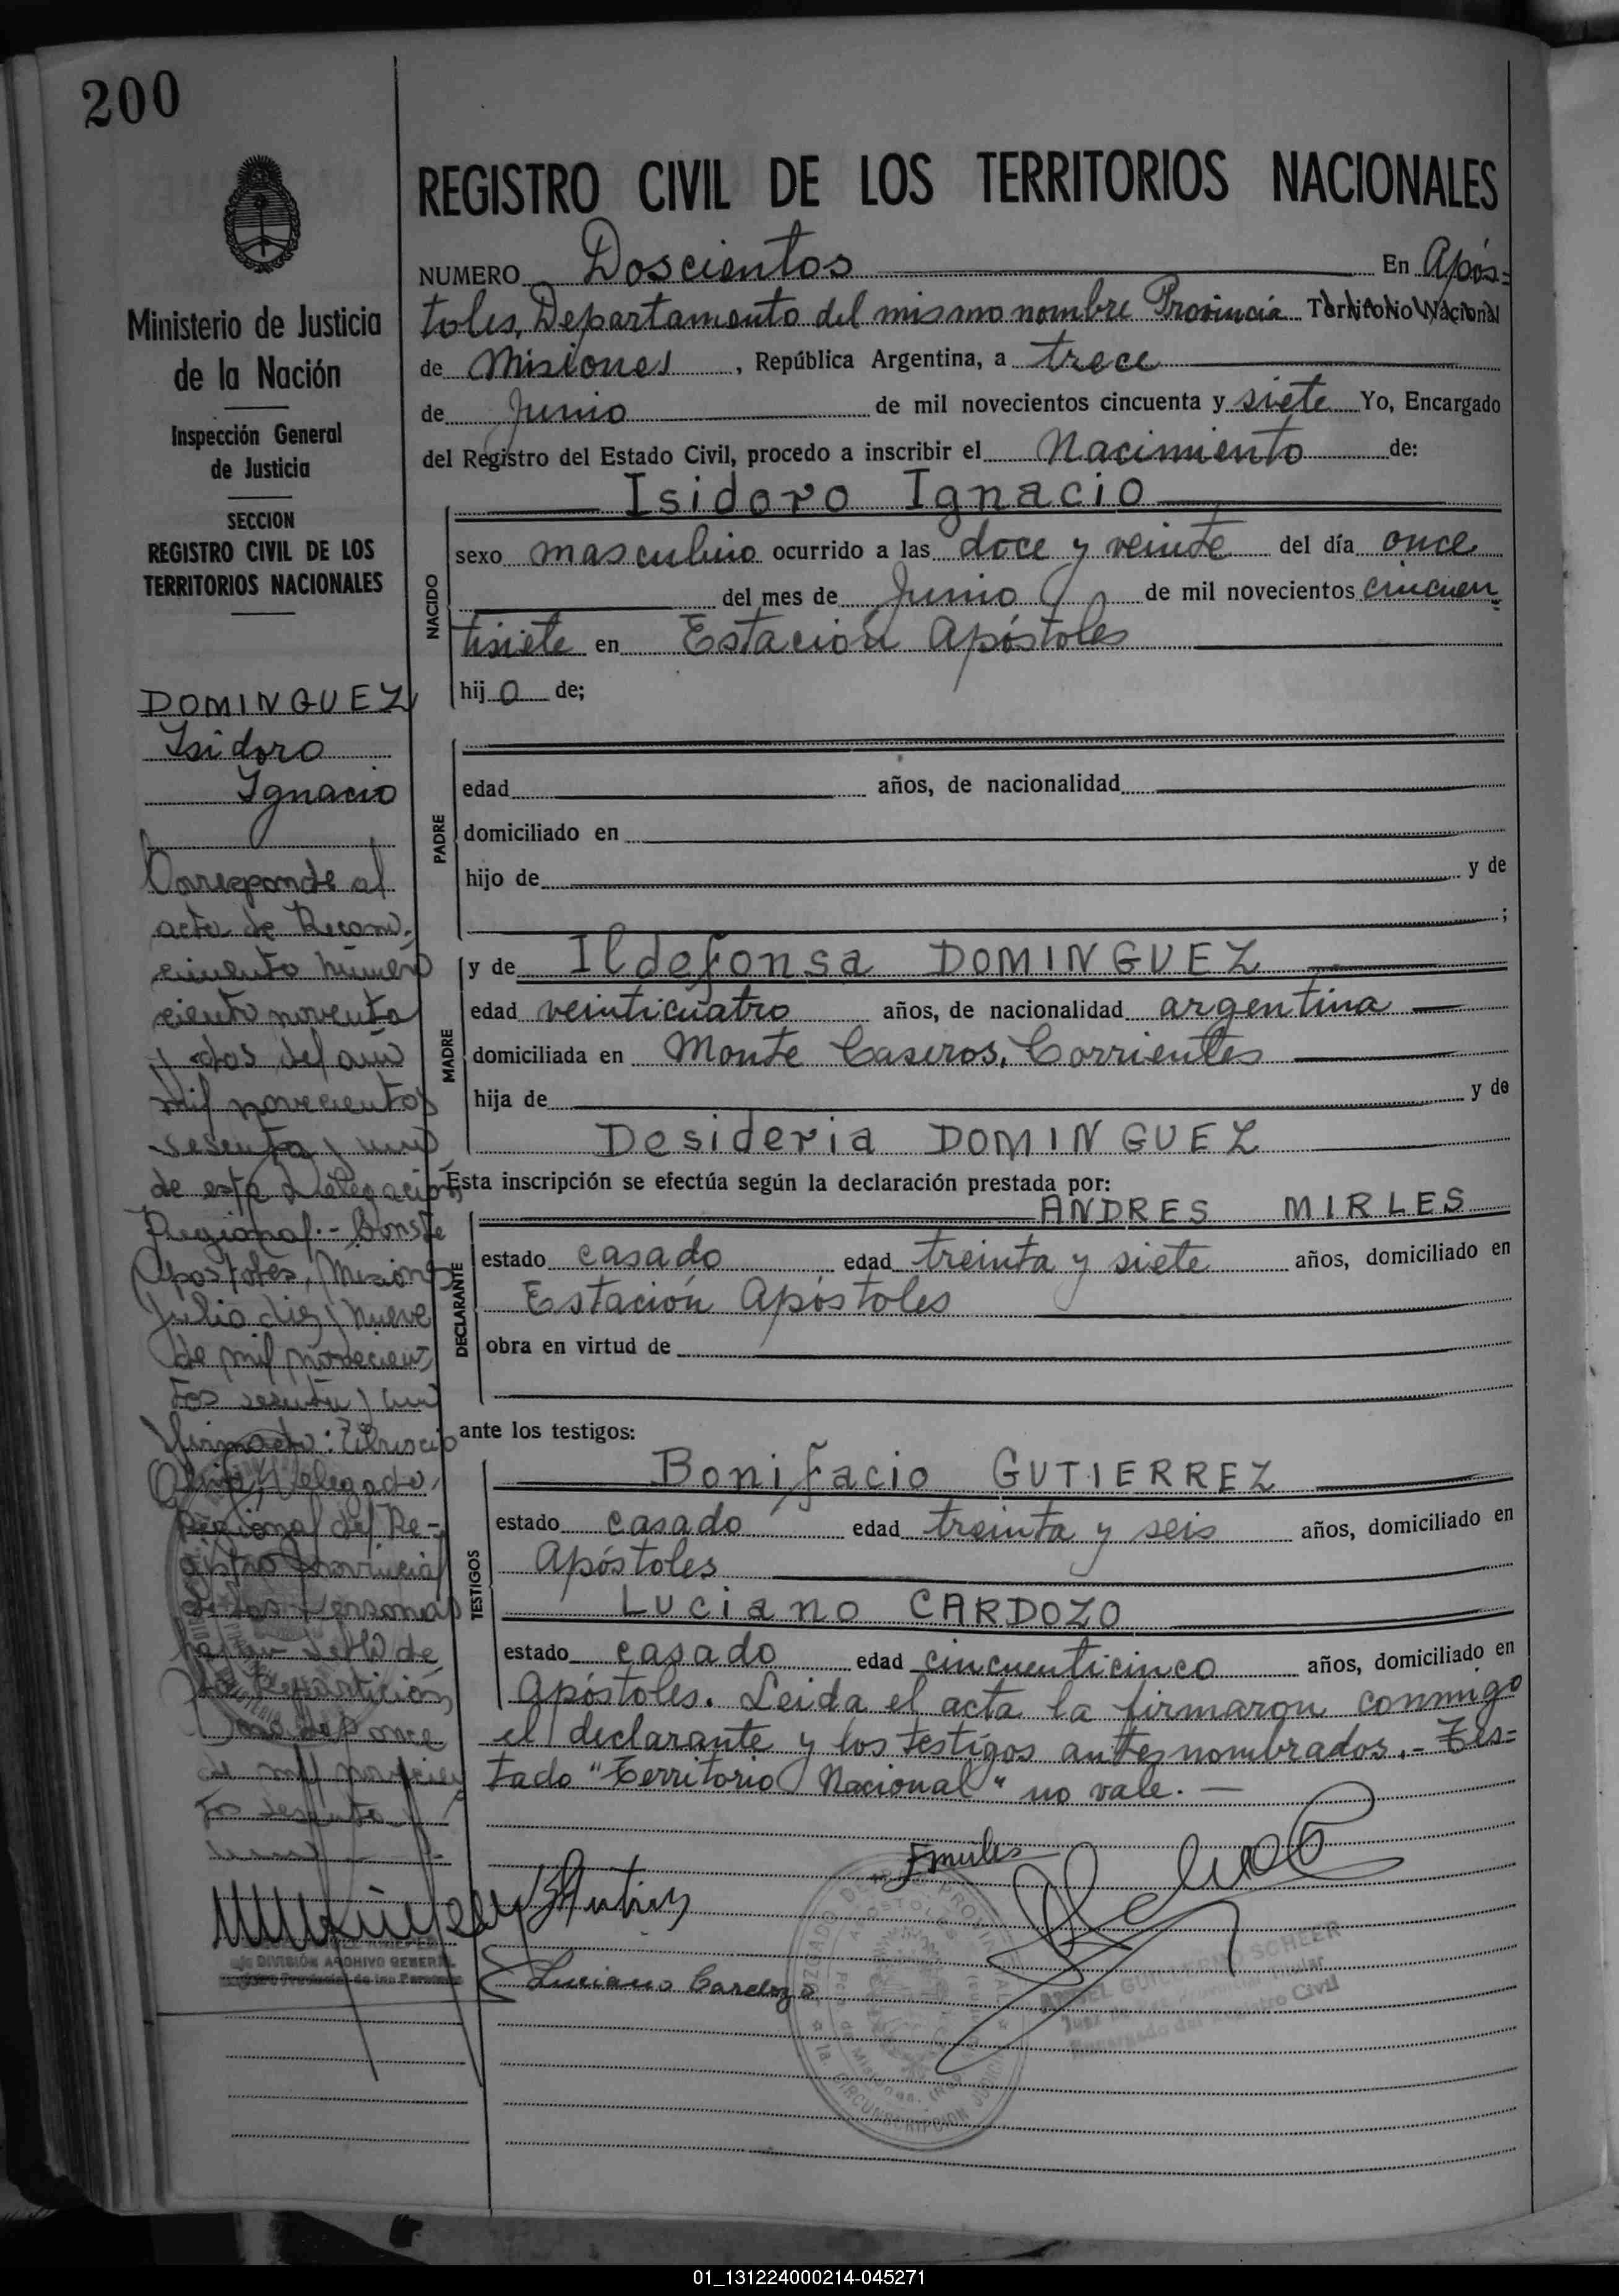 200
Ministerio de Justicia
de la Nación
Inspección General
de Justicia
SECCION
REGISTRO CIVIL DE LOS
TERRITORIOS NACIONALES
DOMINGUEZ
Isidoro
Ignacio
Corresponde al
acta de Recono-
cimiento número
ciento noventa
y dos del año
mil novecientos
sesenta y uno
de esta Delegación
Regional.- Conste
Apostoles, Misiones
Julio diez y nueve
de mil novecien
tos sesenta y uno
Firmado:
Delegado
Regional del Re-
gistro Provincial
de las Personas
de
Repartición
once
de mil novecien
tos sesenta y
uno
DIVISIÓN ARCHIVO GENERAL
Registro Provincial de las Personas
REGISTRO CIVIL DE LOS TERRITORIOS NACIONALES
NUMERO Doscientos En Após=
toles, Departamento del mismo nombre Provincia Territorio Nacional
de Misiones, República Argentina, a trece
de Junio de mil novecientos cincuenta y siete Yo, Encargado
del Registro del Estado Civil, procedo a inscribir el Nacimiento de:
NACIDO
Isidoro Ignacio
sexo masculino ocurrido a las doce y veinte del día once
del mes de Junio de mil novecientos cincuen
tisiete en Estación Apóstoles
hijo de;
PADRE
edad años, de nacionalidad
domiciliado en
hijo de y de
;
MADRE
y de Ildefonsa DOMINGUEZ
edad veinticuatro años, de nacionalidad argentina
domiciliada en Monte Caseros, Corrientes
hija de y de
Desideria DOMINGUEZ
Esta inscripción se efectúa según la declaración prestada por:
DECLARANTE
ANDRES MIRLES
estado casado edad treinta y siete años, domiciliado en
Estación Apóstoles
obra en virtud de
ante los testigos:
TESTIGOS
Bonifacio GUTIERREZ
estado casado edad treinta y seis años, domiciliado en
Apóstoles
Luciano CARDOZO
estado casado edad cincuenticinco años, domiciliado en
Apóstoles. Leida el acta la firmaron conmigo
el declarante y los testigos antes nombrados.- Tes=
tado "Territorio Nacional" no vale.-
Luciano Cardozo
ANGEL GUILLERMO SCHEER
Encargado del Registro Civil
01_131224000214-045271